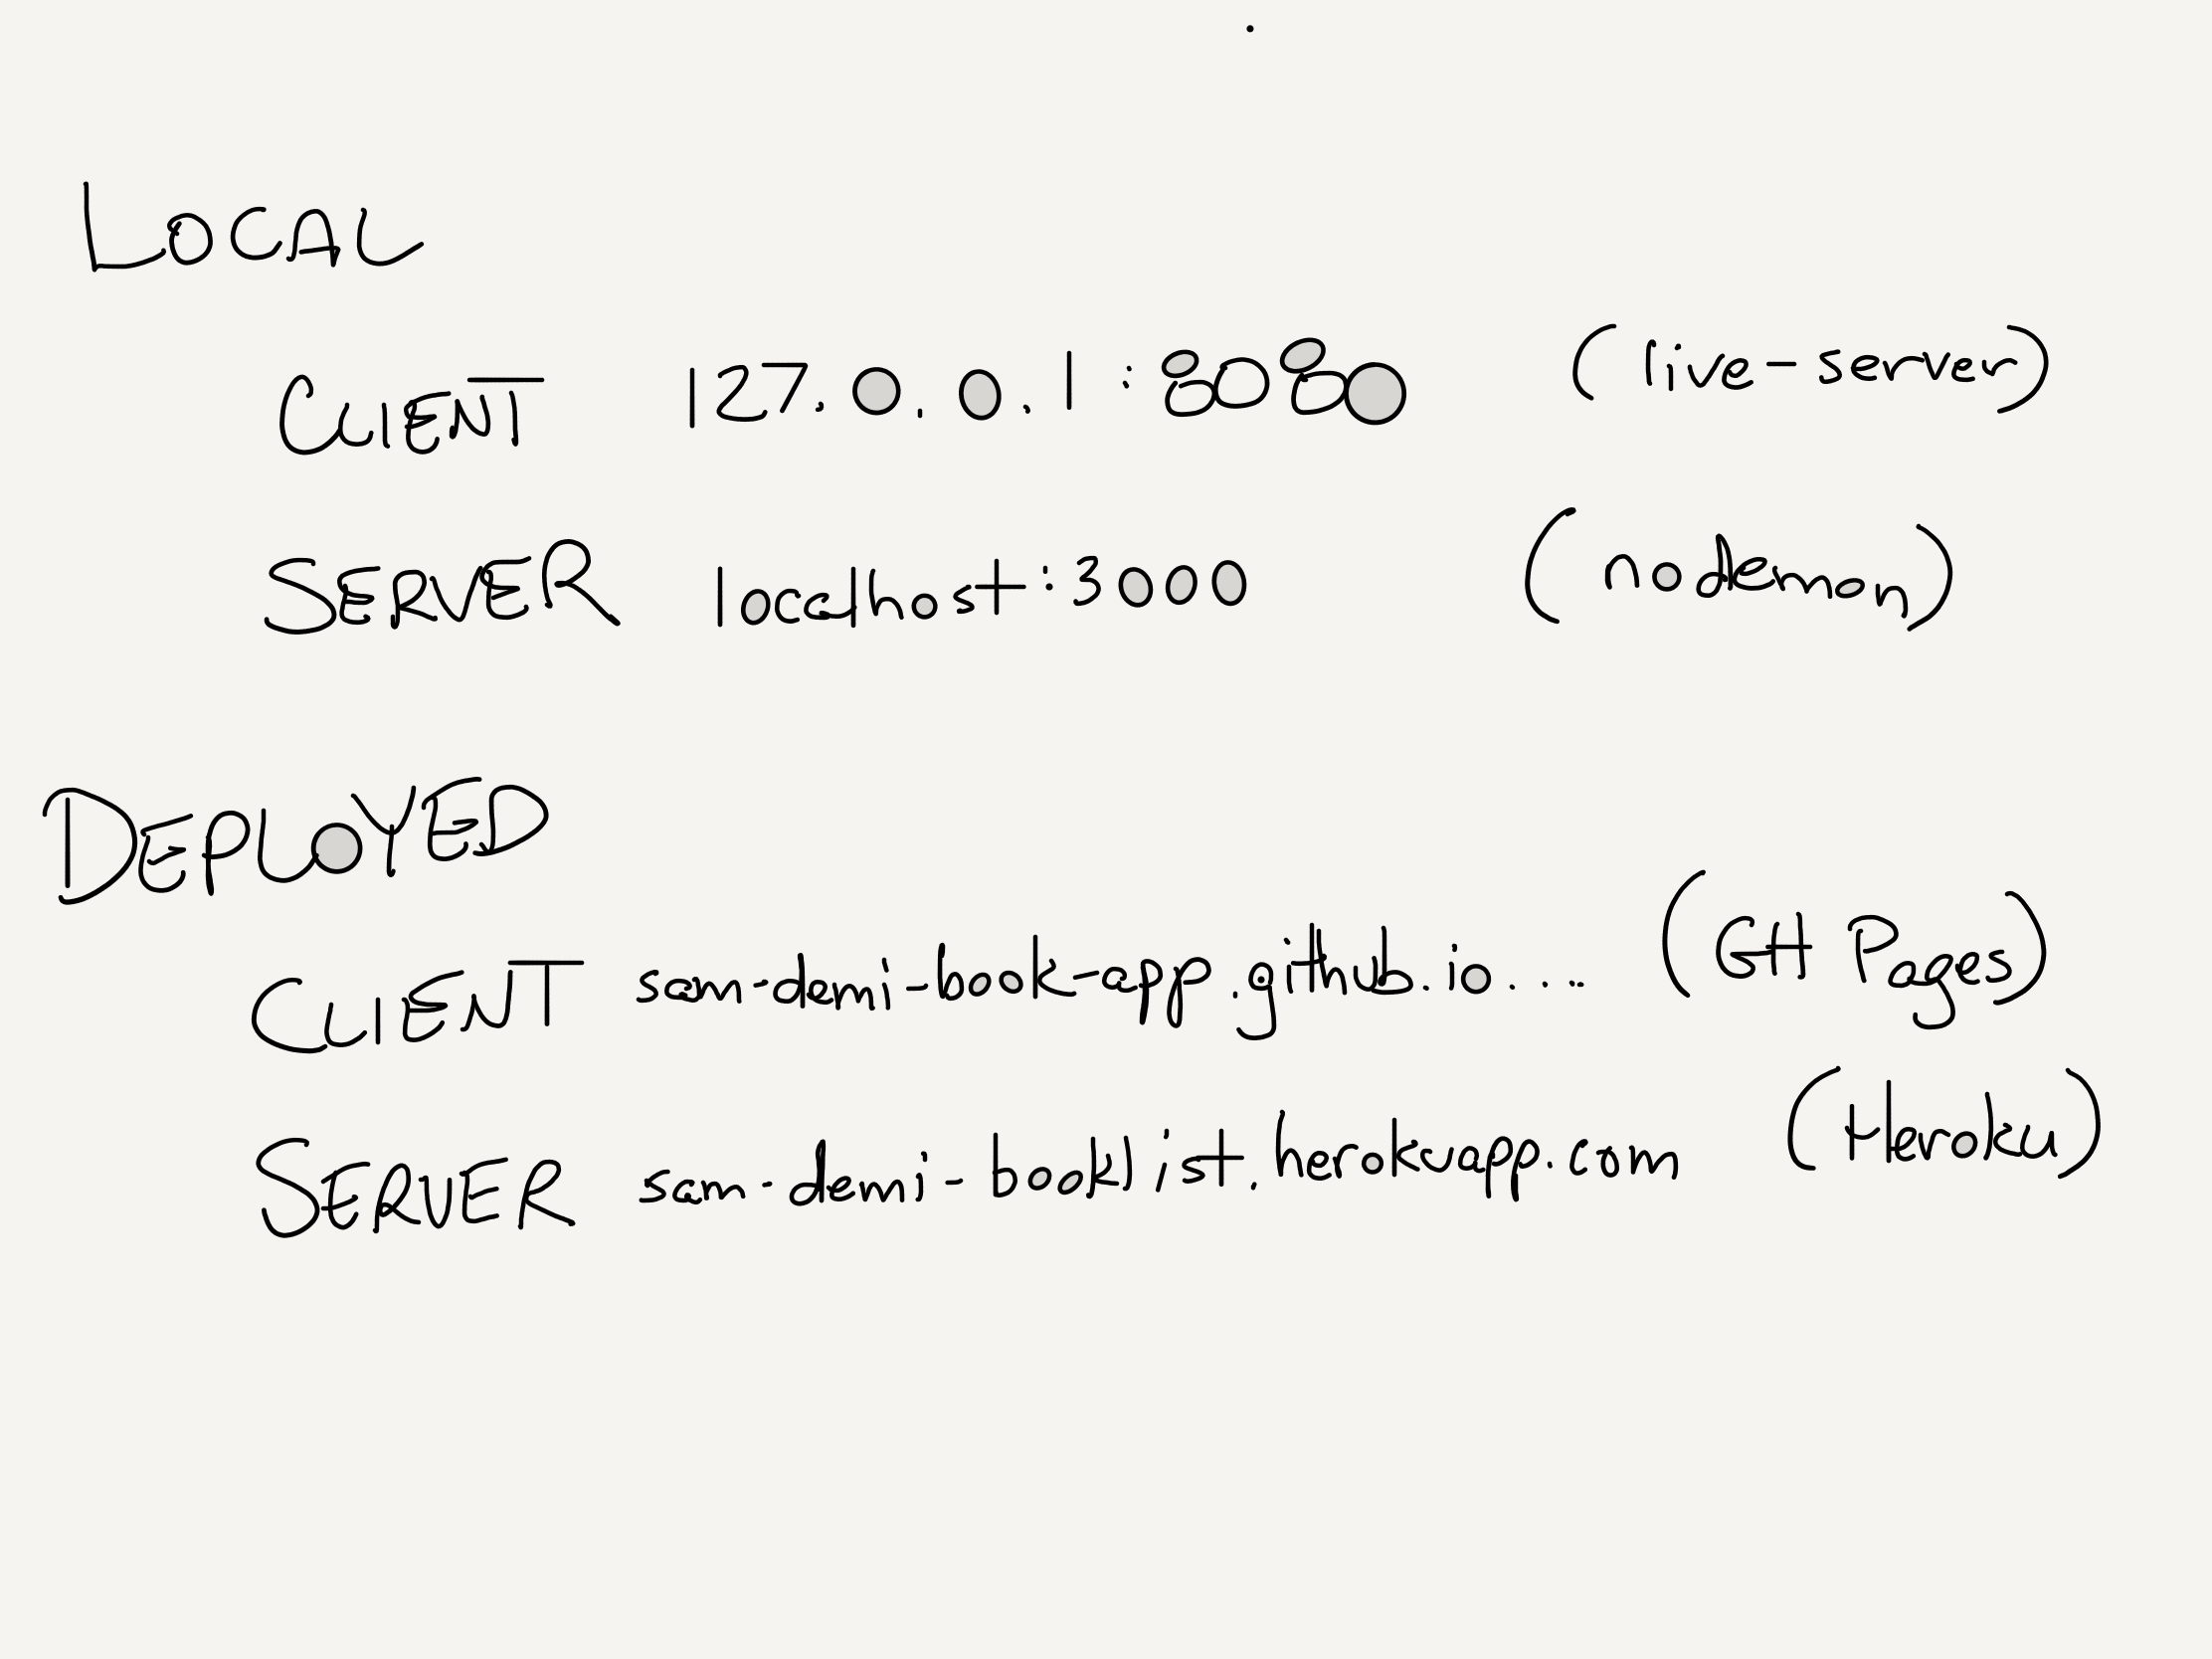 LOCAL
CLIENT 127.0.0.1:8080 (live-server)
SERVER localhost:3000 (nodemon)
DEPLOYED
CLIENT sam-demi-book-app.github.io... (GH Pages)
SERVER sam-demi-booklist.herokuapp.com (Heroku)